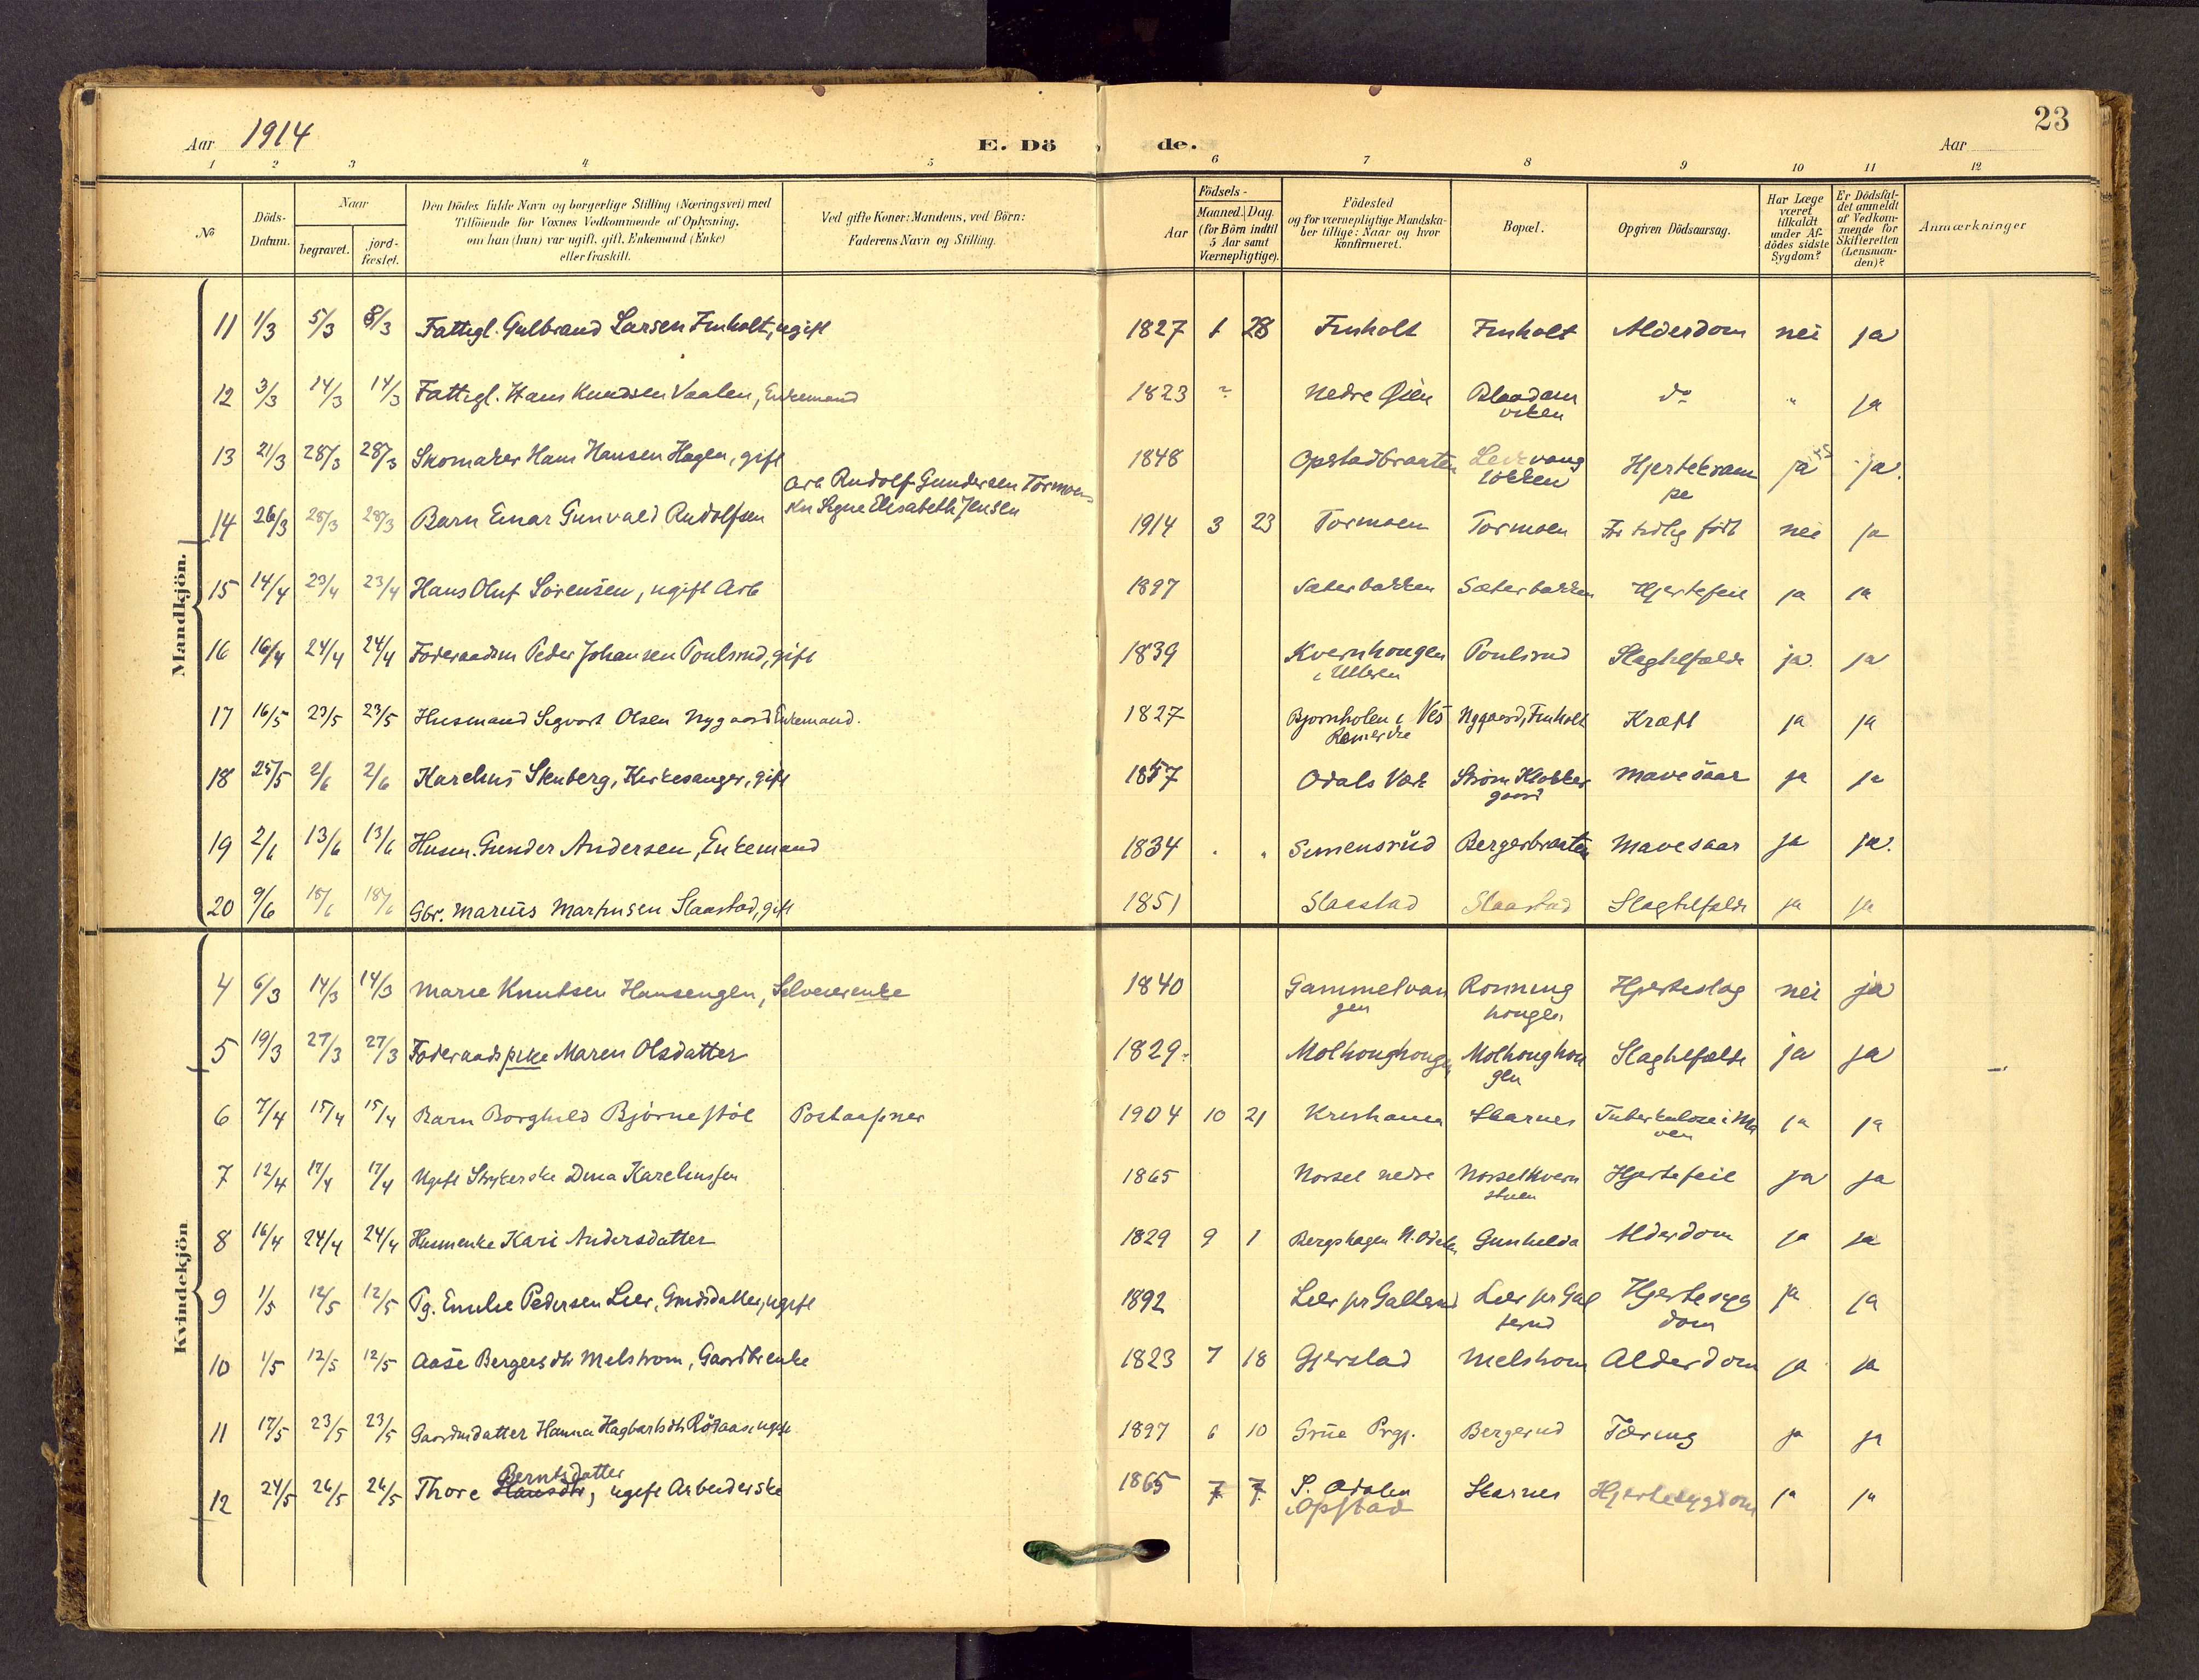 23
Aar 1914
E. Dö de.
Aar
1 2 3 4 5 6 7 8 9 10 11 12
No
Döds-Datum.
Naar
begravet.
jord-fæstet.
Den Dödes fulde Navn og borgerlige Stilling (Næringsvei) med
Tilföiende for Voxnes Vedkommende af Oplysning,
om han (hun) var ugift, gift, Enkemand (Enke)
eller fraskilt.
Ved gifte Koner: Mandens, ved Börn:
Faderens Navn og Stilling.
Aar
Födsels-
Maaned. Dag.
(for Börn indtil
5 Aar samt
Værnepligtige).
Födested
og for værnepligtige Mandska-
ber tillige: Naar og hvor
konfirmeret.
Bopæl.
Opgiven Dödsaarsag.
Har Læge
været
tilkaldt
under Af-
dödes sidste
Sygdom?
Er Dödsfal-
det anmeldt
af Vedkom-
mende for
Skifteretten
(Lensman-
den)?
Anmærkninger
Mandkjön.
11 1/3 5/3 8/3 Fattigl. Gulbrand Larsen Finholt, ugift 1827 1 28 Finholt Finholt Alderdom nei ja
12 3/3 14/3 14/3 Fattigl. Hans Knudsen Vaalen, Enkemand 1823 Nedre Øien do " ja
13 21/3 28/3 28/3 Skomaker Hans Hansen Hagen, gift 1848 Opstadbraaten Hjertekram ja ja
løkken pe
Arb Rudolf Gundersen Tormoen
14 26/3 28/3 28/3 Barn Einar Gunvald Rudolfsen Kn Signe Elisabeth Jensen 1914 3 23 Tormoen Tormoen For tidlig født nei ja
15 14/4 23/4 23/4 Hans Oluf Sørensen, ugift Arb 1897 Sæterbakken Sæterbakken Hjertefeil ja ja
16 16/4 24/4 24/4 Føderaadsm Peder Johansen Poulsrud, gift 1839 Kvernhougen Poulsrud Slagtilfælde ja ja
i Ulleren
17 16/5 23/5 23/5 Husmand Sigvart Olsen Nygaard Enkemand. 1827 Bjørnholen i Nygaard, Finholt Kræft ja ja
18 25/5 2/6 2/6 Karelius Stenberg, Kirkesanger, gift 1857 Odals Værk Strøm Klokker Mavesaar ja ja
gaard
19 2/6 13/6 13/6 Husm. Gunder Andersen, Enkemand 1834 Simensrud Bergerbraaten Mavesaar ja ja.
20 9/6 18/6 18/6 Gbr. Marius Martinsen Slaastad, gift 1851 Slaastad Slaastad Slagtilfælde ja ja
Kvindekjön
4 6/3 14/3 14/3 Marie Knutsen Hansengen, Selveierenke 1840 Gammelvan Rønning Hjerteslag nei ja
gen hougen
5 19/3 27/3 27/3 Føderaadspike Maren Olsdatter 1829 Molhoughougen Molhoughou Slagtilfælde ja ja
gen
6 7/4 15/4 15/4 Barn Borghild Bjørnestøl Postaapner 1904 10 21 Kristiania Skarnes Tuberkulose i Ma ja ja
ven
7 12/4 17/4 17/4 Ugift Strykerske Dina Kareliussen 1865 Norsel nedre Norselkvern Hjertefeil ja ja
stuen
8 16/4 24/4 24/4 Husmenke Kari Andersdatter 1829 9 1 Bergshagen N. Odalen Gunhilda Alderdom ja ja
9 1/5 12/5 12/5 Pg. Emilie Pedersen Lier, Gmdsdatter, ugift 1892 Lier pr Galterud Lier pr Gal Hjertesyg ja ja
terud dom
10 1/5 12/5 12/5 Aase Bergersdtr Melstrom, Gaardbrenke 1823 7 18 Gjerstad Melstrom Alderdom ja ja
11 17/5 23/5 23/5 Gaardmdatter Hanna Hagbartsdtr Røtaas, ugift 1897 6 10 Grue Prgj. Bergerud Tæring ja ja
Berntsdatter
12 24/5 26/5 26/5 Thore Hansdtr, ugift Arbeiderske 1865 7 7 S. Odalen Skarnes Hjertesygdom ja ja
i Opstad